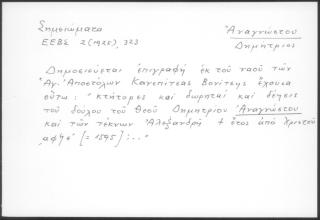 Σημειώματα
ΕΕΒΣ 2 (1925), 323
Ἀναγνώστου
Δημήτριος
Δημοσιεύεται ἐπιγραφὴ ἐκ τοῦ ναοῦ τῶν
Ἁγ. Ἀποστόλων Κανεπίτσας Βονίτσης ἔχουσα
οὕτω: "κτήτορες καὶ δωρηταὶ καὶ δέησις
τοῦ δούλου τοῦ Θεοῦ Δημητρίου Ἀναγνώστου
καὶ τῶν τέκνων Ἀλεξανδρῆ + ἔτος ἀπὸ Χριστοῦ
,αφϟε [= 1595] :.."